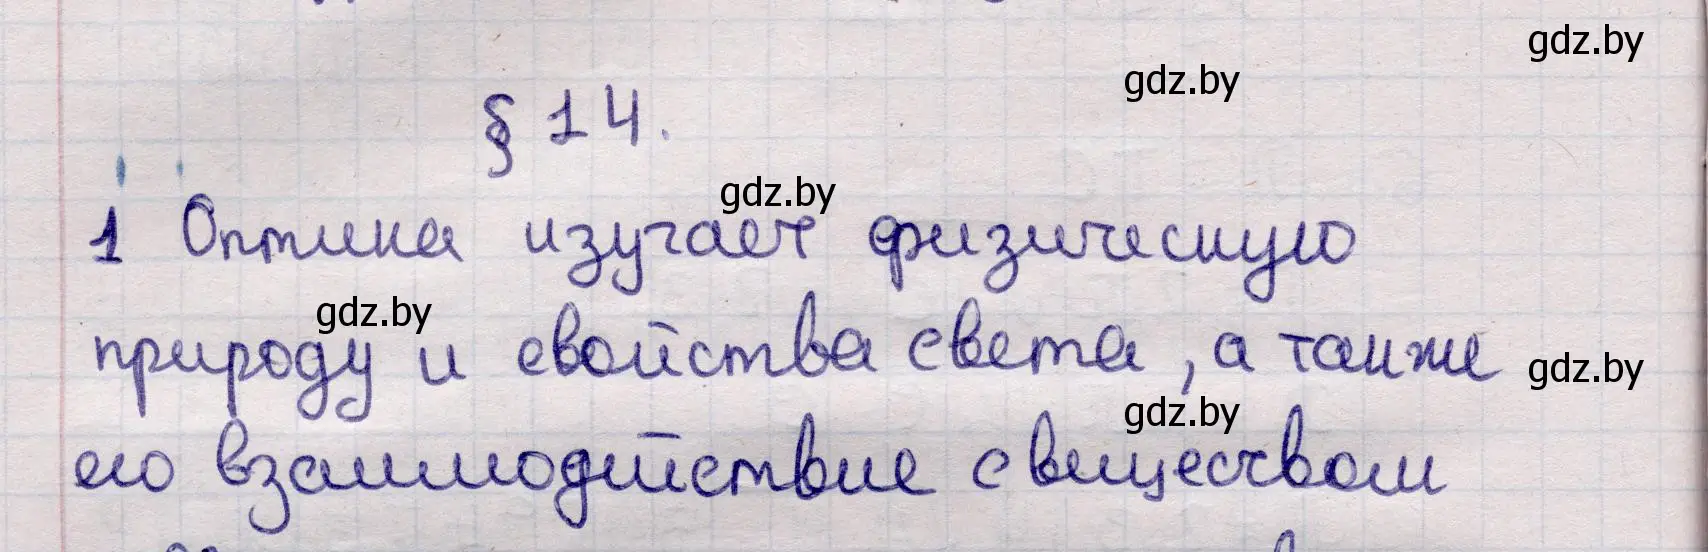 gdz.by
gdz.by
§ 14.
gdz.by
1 Оптика изучает физическую
gdz.by
природу и свойства света, а также
gdz.by
gdz.by
его взаимодействие с веществом